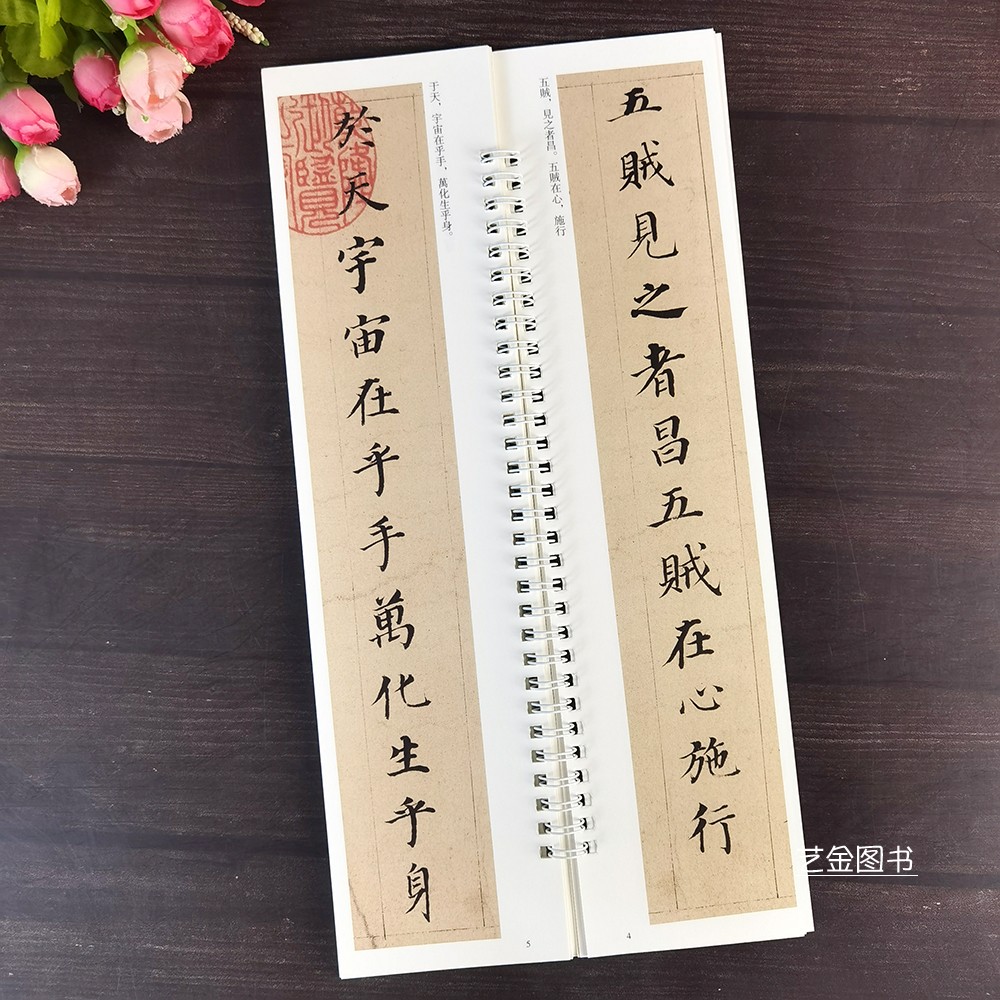 五賊見之者昌五賊在心施行
五賊，見之者昌。五賊在心，施行
4
於天宇宙在乎手萬化生乎身
于天，宇宙在乎手，萬化生乎身。
5
艺金图书